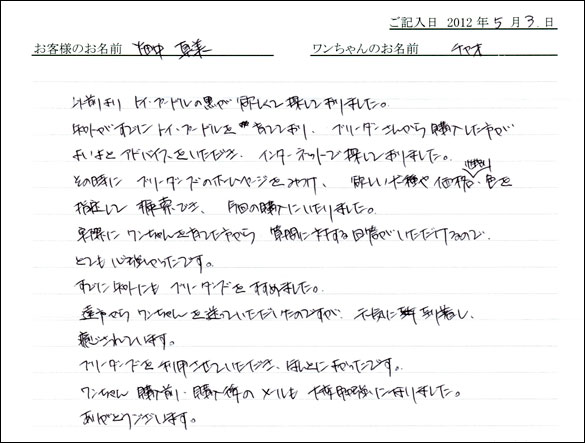 ご記入日 2012年5月3日
お客様のお名前 畑中 真美 ワンちゃんのお名前 チャオ
以前より トイ・プードルの黒が欲しくて探しておりました。
知人がすでにトイ・プードルを育てており、ブリーダーさんから購入した方が
よいよとアドバイスをいただき、インターネットで探しておりました。
その時に ブリーダーズのホームページをみつけ、欲しい犬種や価格・性別・色を
指定して 検索でき、今回の購入にいたりました。
実際に ワンちゃんを育てた方から 質問に対する回答がいただけるので、
とても心強かったです。
すでに知人にも ブリーダーズをすすめました。
遠方から ワンちゃんを送っていただいたのですが、元気に到着し、
癒されています。
ブリーダーズを利用させていただき、ほんとによかったです。
ワンちゃん 購入前・購入後のメールも 大変勉強になりました。
ありがとうございます。